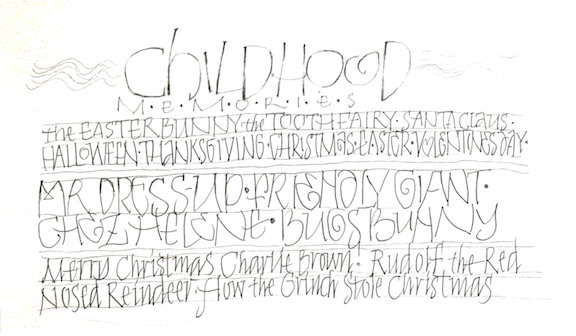 ChILDHOOD
M·E·M·O·R·I·E·S
the EASTER BUNNY the TOOTH FAIRY · SANTA CLAUS ·
HALLOWEEN · THANKSGIVING · CHRISTMAS · EASTER · VALENTINES DAY ·
MR DRESS-UP · FRIENDLY GIANT ·
CHEZ HELENE · BUGS BUNNY
Merry Christmas Charlie Brown · Rudolf the Red
Nosed Reindeer · How the Grinch Stole Christmas